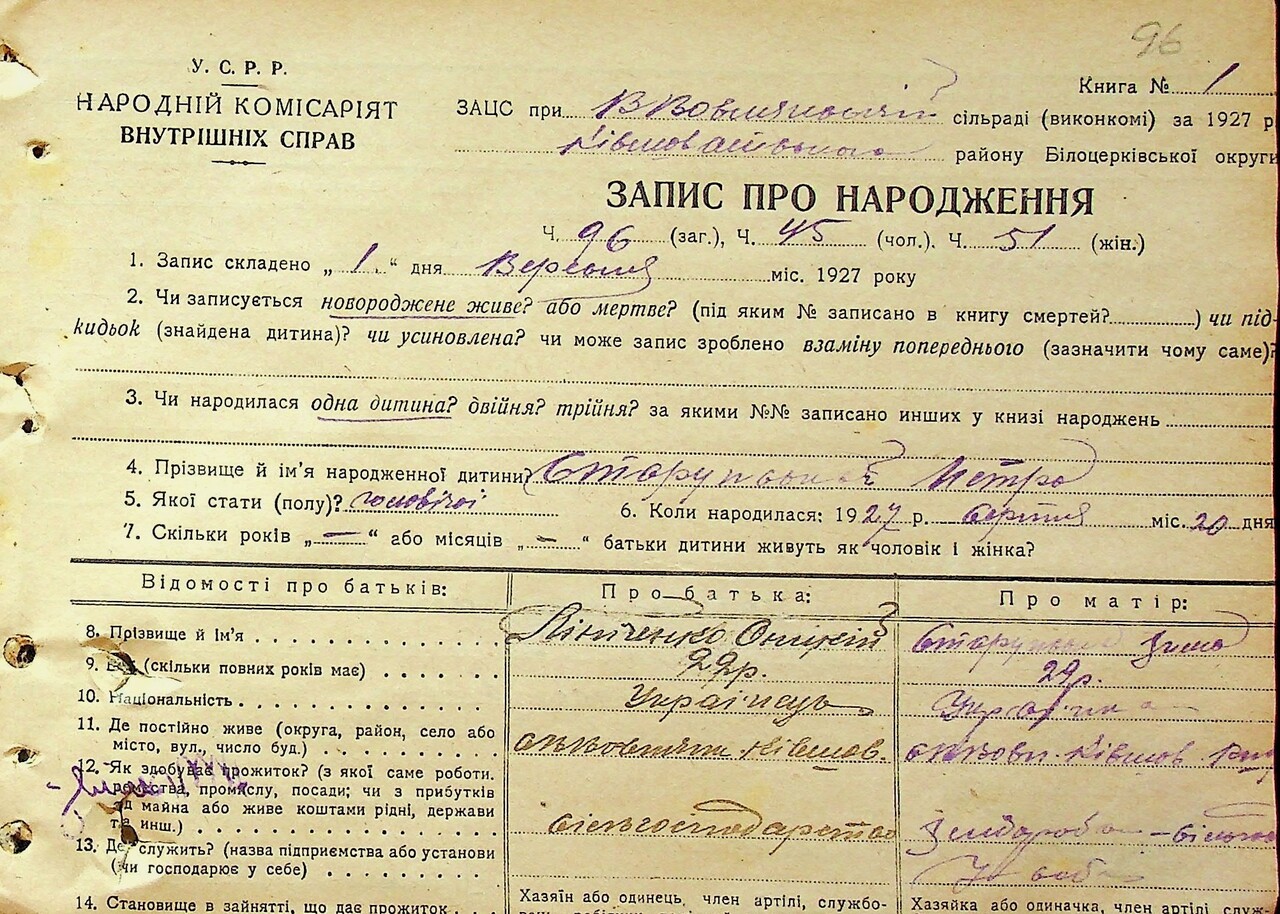 96
У. С. Р. Р.
НАРОДНІЙ КОМІСАРІЯТ
ВНУТРІШНІХ СПРАВ
Книга № 1
ЗАЦС при сільраді (виконкомі) за 1927 р
району Білоцерківської округи
ЗАПИС ПРО НАРОДЖЕННЯ
Ч. 96 (заг.), Ч. 45 (чол.). Ч. 51 (жін.)
1. Запис складено „ 1. “ дня Вересня міс. 1927 року
2. Чи записується новороджене живе? або мертве? (під яким № записано в книгу смертей?) чи під-
кидьок (знайдена дитина)? чи усиновлена? чи може запис зроблено взаміну попереднього (зазначити чому саме)?
3. Чи народилася одна дитина? двійня? трійня? за якими №№ записано инших у книзі народжень
4. Прізвище й ім’я народженної дитини? Петро
5. Якої стати (полу)? чоловічої 6. Коли народилася: 1927 р. серпня міс. 20 дня
7. Скільки років „ — “ або місяців „ — “ батьки дитини живуть як чоловік і жінка?
Відомості про батьків: Про батька: Про матір:
8. Прізвище й ім’я
9. Вік (скільки повних років має) 22р. 29р.
10. Національність Українець Українка
11. Де постійно живе (округа, район, село або
місто, вул., число буд.)
12. Як здобуває прожиток? (з якої саме роботи.
ремества, промислу, посади; чи з прибутків
од майна або живе коштами рідні, держави
та инш.) сільгосподарство
13. Де служить? (назва підприємства або установи
(чи господарює у себе)
14. Становище в зайнятті, що дає прожиток Хазяїн або одинець, член артілі, службо- Хазяйка або одиначка, член артілі, служ-